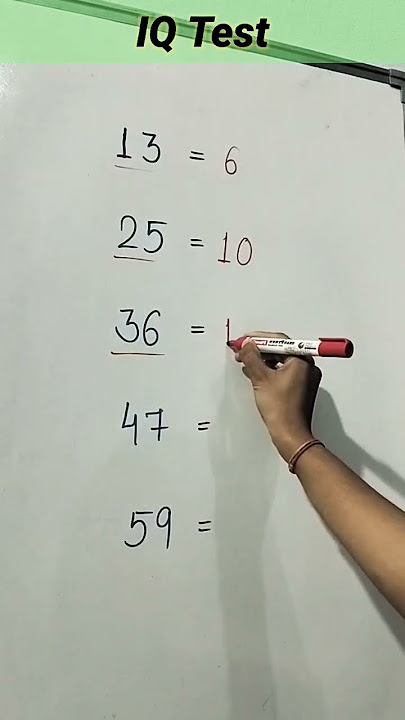 IQ Test
13 = 6
25 = 10
36 = 1
47 =
59 =